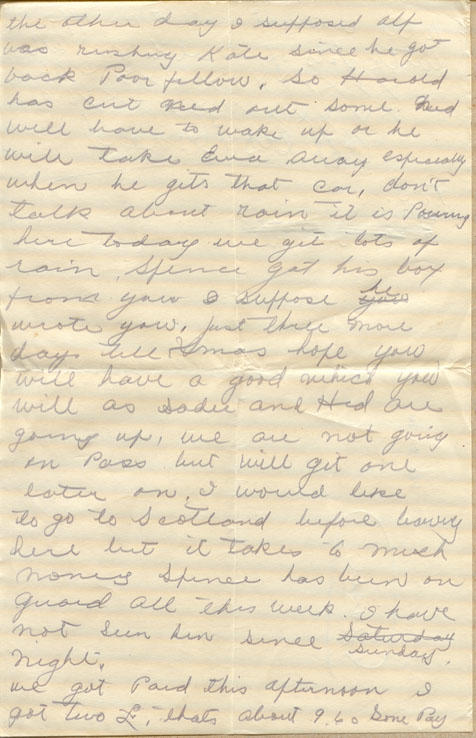 the other day I supposed alf
was rushing Kate since he got
back Poor fellow. So Harold
has cut Ned out some. Ned
will have to wake up or he
will take Eva away especially
when he gits that car, don't
talk about rain it is Pouring
here today we get lots of
rain. Spence got his box
from you I suppose he
wrote you, just three more
days till Xmas hope you
will have a good which you
will as Sadie and Hed are
going up, we are not going
on Pass but will get one
later on. I would like
to go to Scotland before leaving
here but it takes to much
money Spence has been on
guard all this week. I have
not seen him since Saturday
Sunday
night.
we got Paid this afternoon I
got two £, thats about 9.60 Some Pay